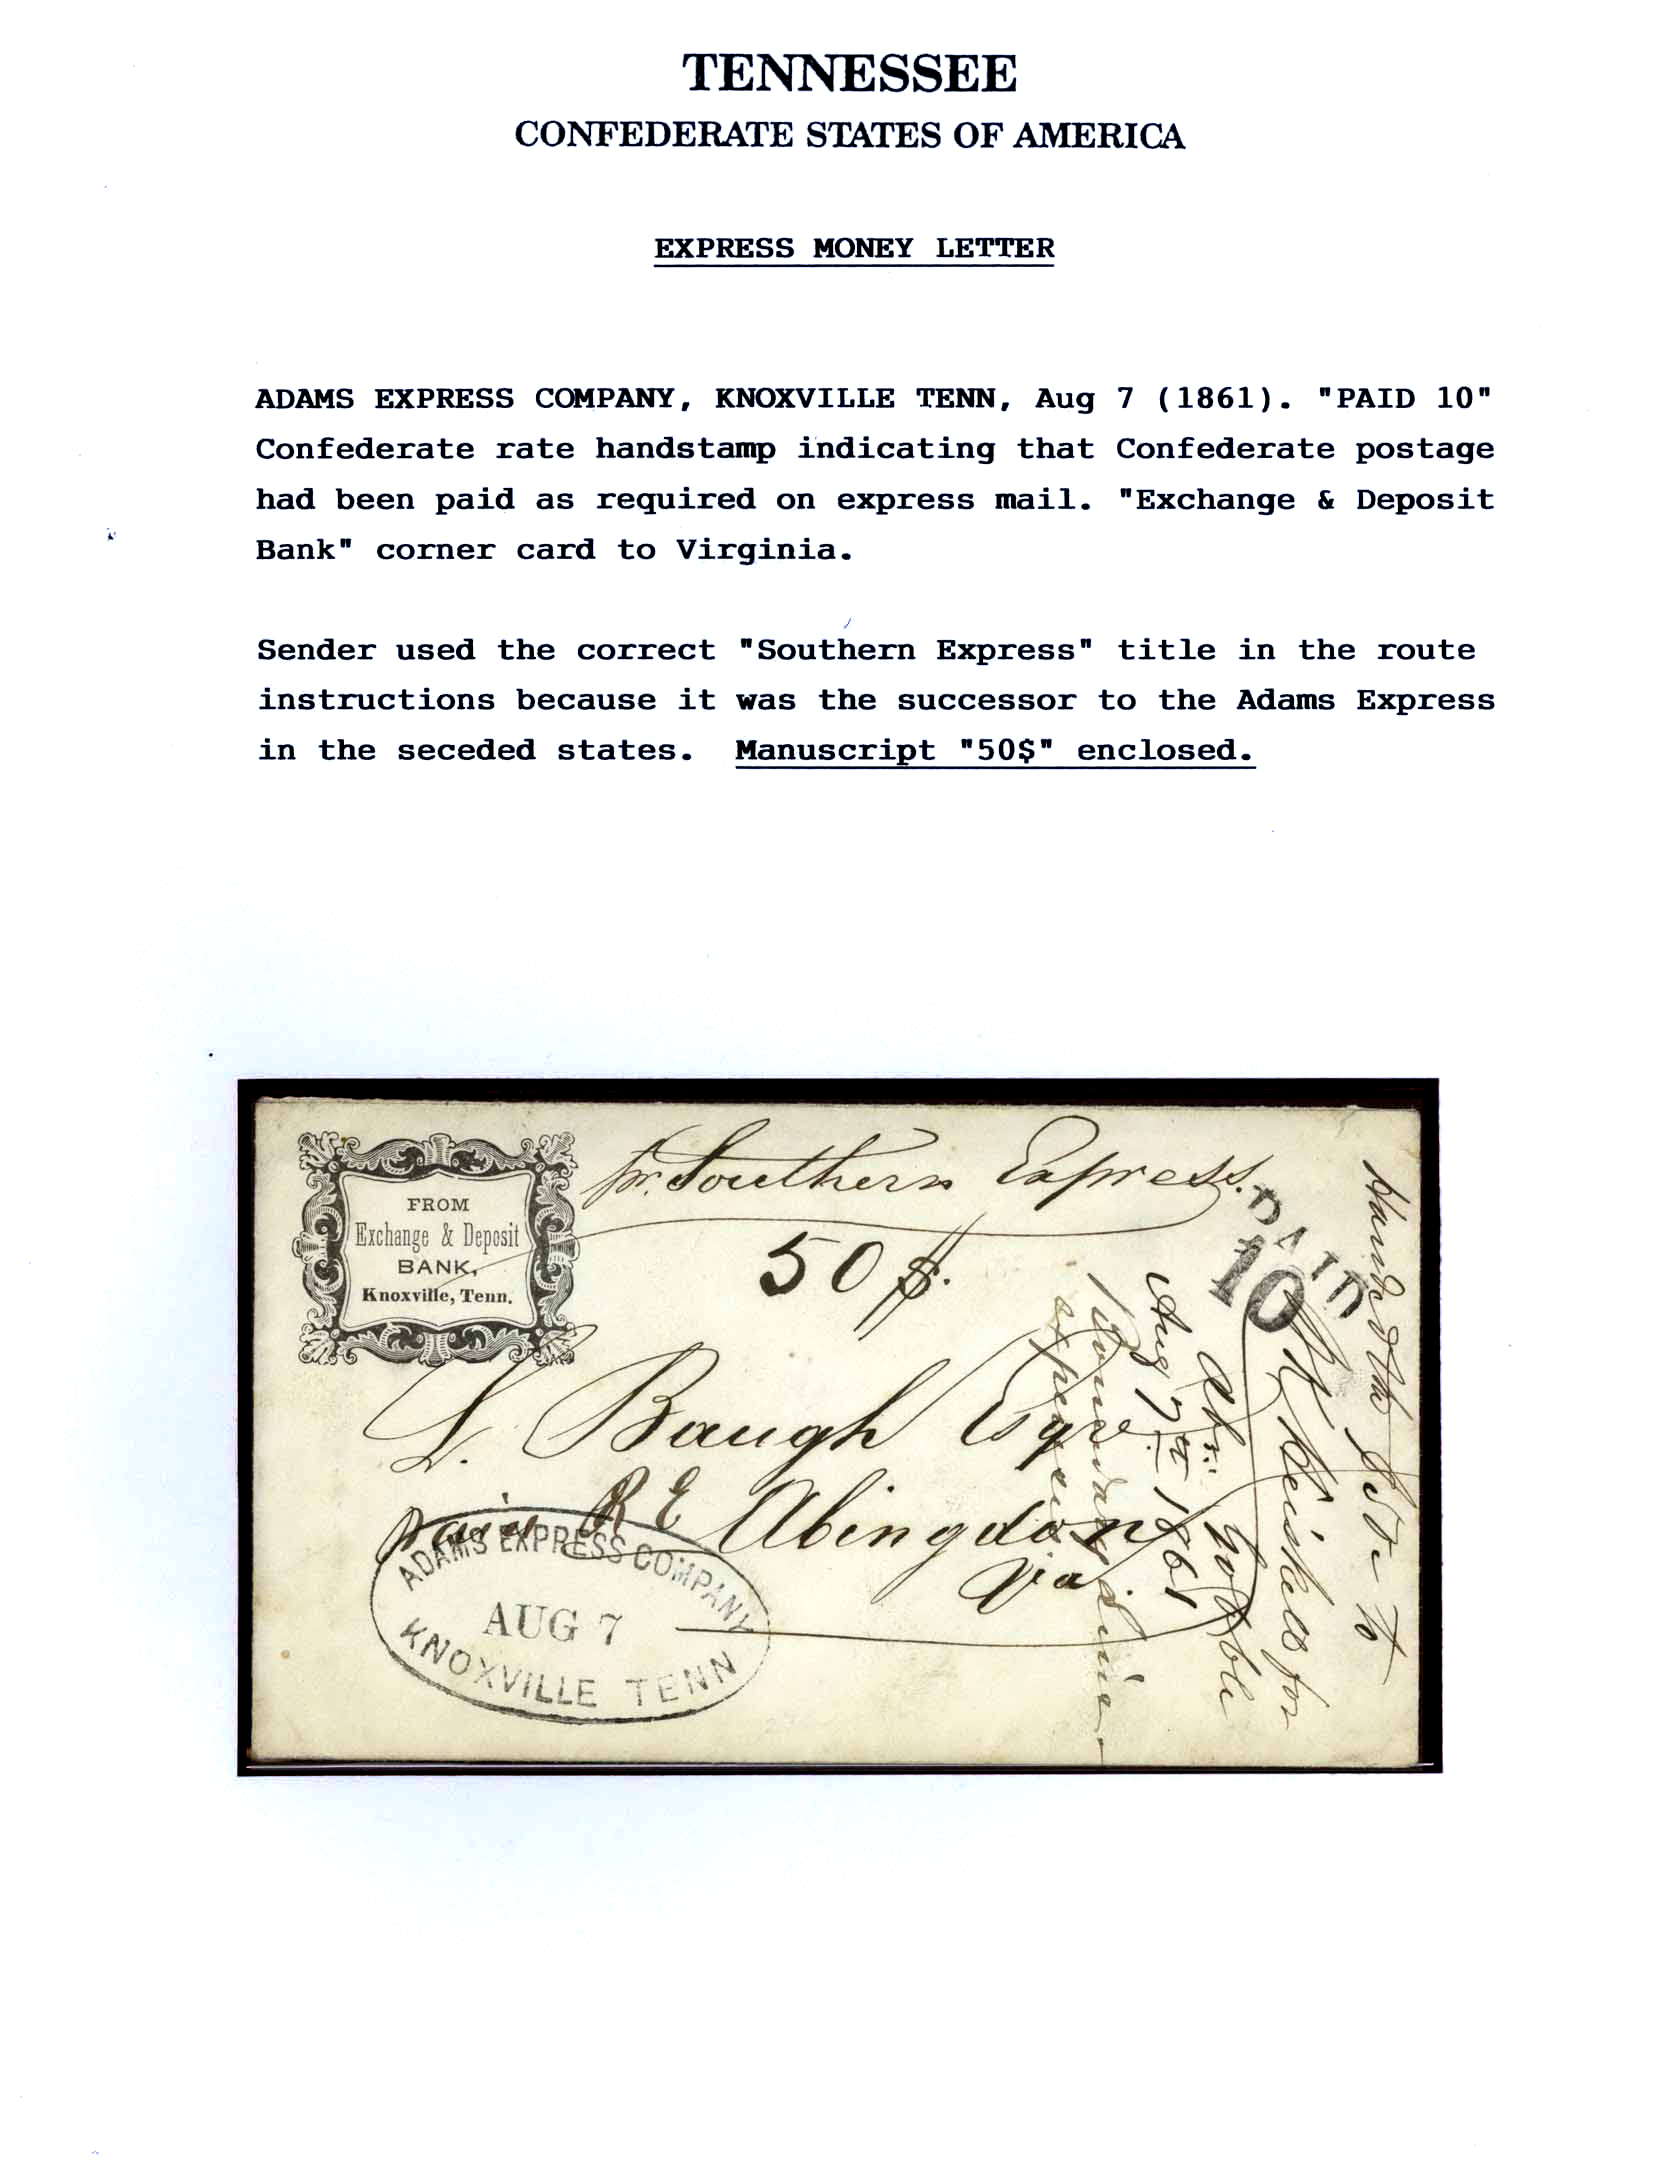 TENNESSEE
CONFEDERATE STATES OF AMERICA
EXPRESS MONEY LETTER
ADAMS EXPRESS COMPANY, KNOXVILLE TENN, Aug 7 (1861). "PAID 10"
Confederate rate handstamp indicating that Confederate postage
had been paid as required on express mail. "Exchange & Deposit
Bank" corner card to Virginia.
Sender used the correct "Southern Express" title in the route
instructions because it was the successor to the Adams Express
in the seceded states. Manuscript "50$" enclosed.
FROM
Exchange & Deposit
BANK,
Knoxville, Tenn.
pr. Southern Express.
50 $.
PAID
10
L. Baugh Esqr.
paid R E Abingdon
Va
ADAMS EXPRESS COMPANY
AUG 7
KNOXVILLE TENN
Handed the $50 to
for
Aug 7th 1861